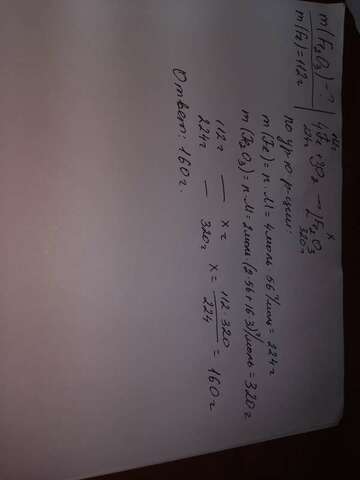 m(Fe₂O₃) - ?
m(Fe) = 112г
112г x
4Fe + 3O₂ → 2Fe₂O₃
224г 320г
по ур-ю р-ции:
m(Fe) = n·M = 4моль · 56 г/моль = 224г
m(Fe₂O₃) = n·M = 2моль · (2·56+16·3) г/моль = 320г
112г — x г
224г — 320г x = 112·320 / 224 = 160г
Ответ: 160г.